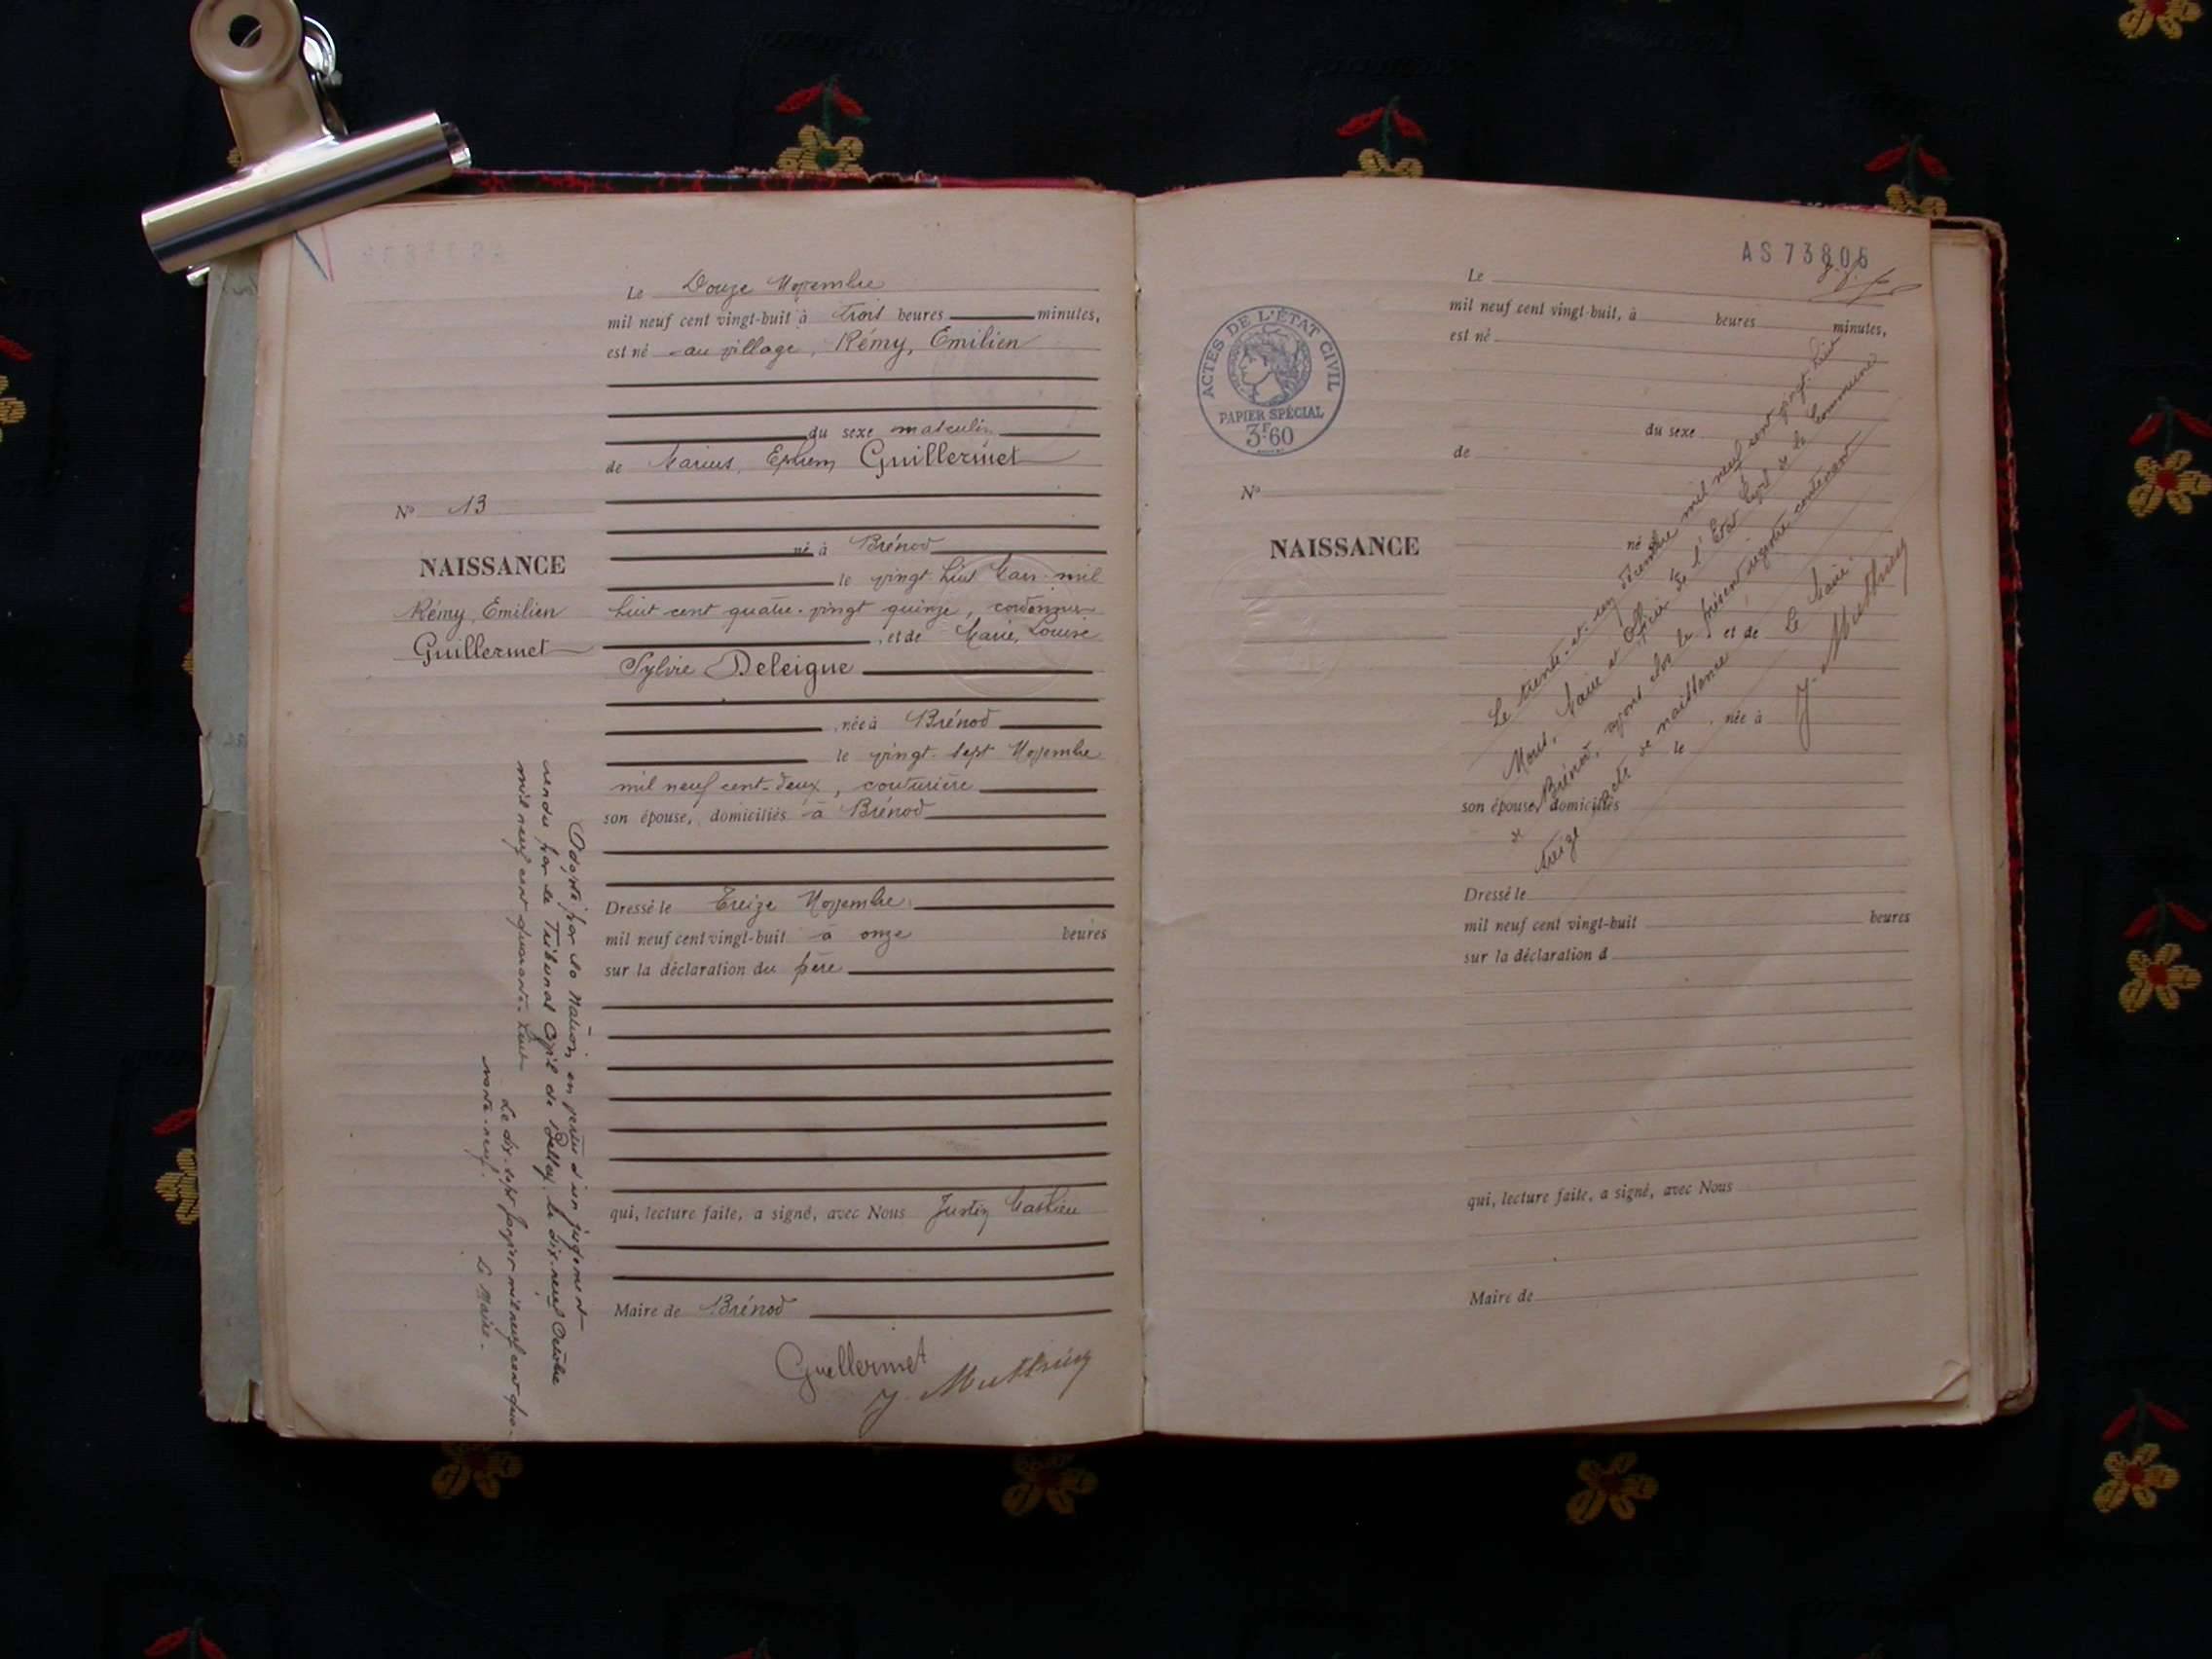 Le Douze Novembre
mil neuf cent vingt-huit à trois heures minutes,
est né au village, Rémy, Emilien
du sexe masculin
de Marius, Ephrem Guillermet
né à Brénod
le vingt-huit Mars mil
huit cent quatre-vingt quinze, cordonnier
, et de Marie, Louise
Sylvie Deleigue
, née à Brénod
le vingt-sept Novembre
mil neuf cent-deux, couturière
son épouse, domiciliés à Brénod
Dressé le Treize Novembre
mil neuf cent vingt-huit à onze heures
sur la déclaration du père
qui, lecture faite, a signé, avec Nous Justin Mathieu
Maire de Brénod
Guillermet
J. Mathieu
Nº 13
NAISSANCE
Rémy, Emilien
Guillermet
Adopté par la Nation, en vertu d'un jugement
rendu par le Tribunal Civil de Belley le dix-neuf Octobre
mil neuf cent quarante-huit
Le dix-sept Janvier mil neuf cent qua-
rante-neuf.
Le Maire.
AS 73806
ACTES DE L'ÉTAT CIVIL
PAPIER SPÉCIAL
3F.60
Nº
NAISSANCE
Le
mil neuf cent vingt-huit, à heures minutes,
est né
du sexe
de
né à
et de
, née à
le
son épouse, domiciliés
Dressé le
mil neuf cent vingt-huit heures
sur la déclaration d
qui, lecture faite, a signé, avec Nous
Maire de
Le trente-et-un décembre mil neuf cent vingt-huit
Nous, Maire et Officier de l'Etat Civil de la Commune
de Brénod, avons clos le présent registre contenant
treize actes de naissance
Le Maire
J. Mathieu